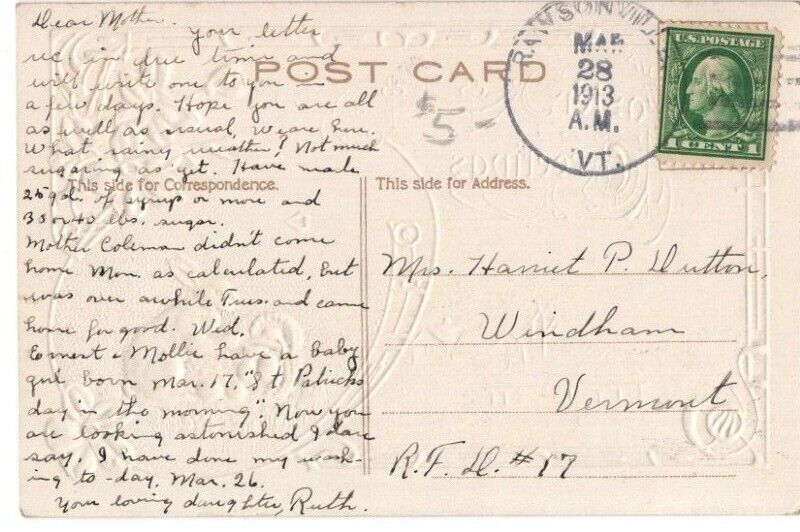 Dear Mother.
your letter
rec in due time and
will write one to you in
a few days. Hope you are all
as well as usual, we are here.
What rainy weather! Not much
sugaring as yet. Have made
25 gals. of syrup or more and
30 or 40 lbs. sugar.
Mother Coleman didn't come
home Mon. as calculated, but
was over awhile Tues. and came
home for good. Wed.
Ernest & Mollie have a baby
girl born Mar. 17, "St Patricks
day in the morning". Now you
are looking astonished I dare
say. I have done my wash-
ing to-day. Mar. 26.
Your loving daughter, Ruth.
POST CARD
$5-
This side for Correspondence.
This side for Address.
RAWSONVILLE
MAR
28
1913
A.M.
VT.
U.S. POSTAGE
1 CENT 1
Mrs. Harriet P. Dutton,
Windham
Vermont
R.F.D. #17